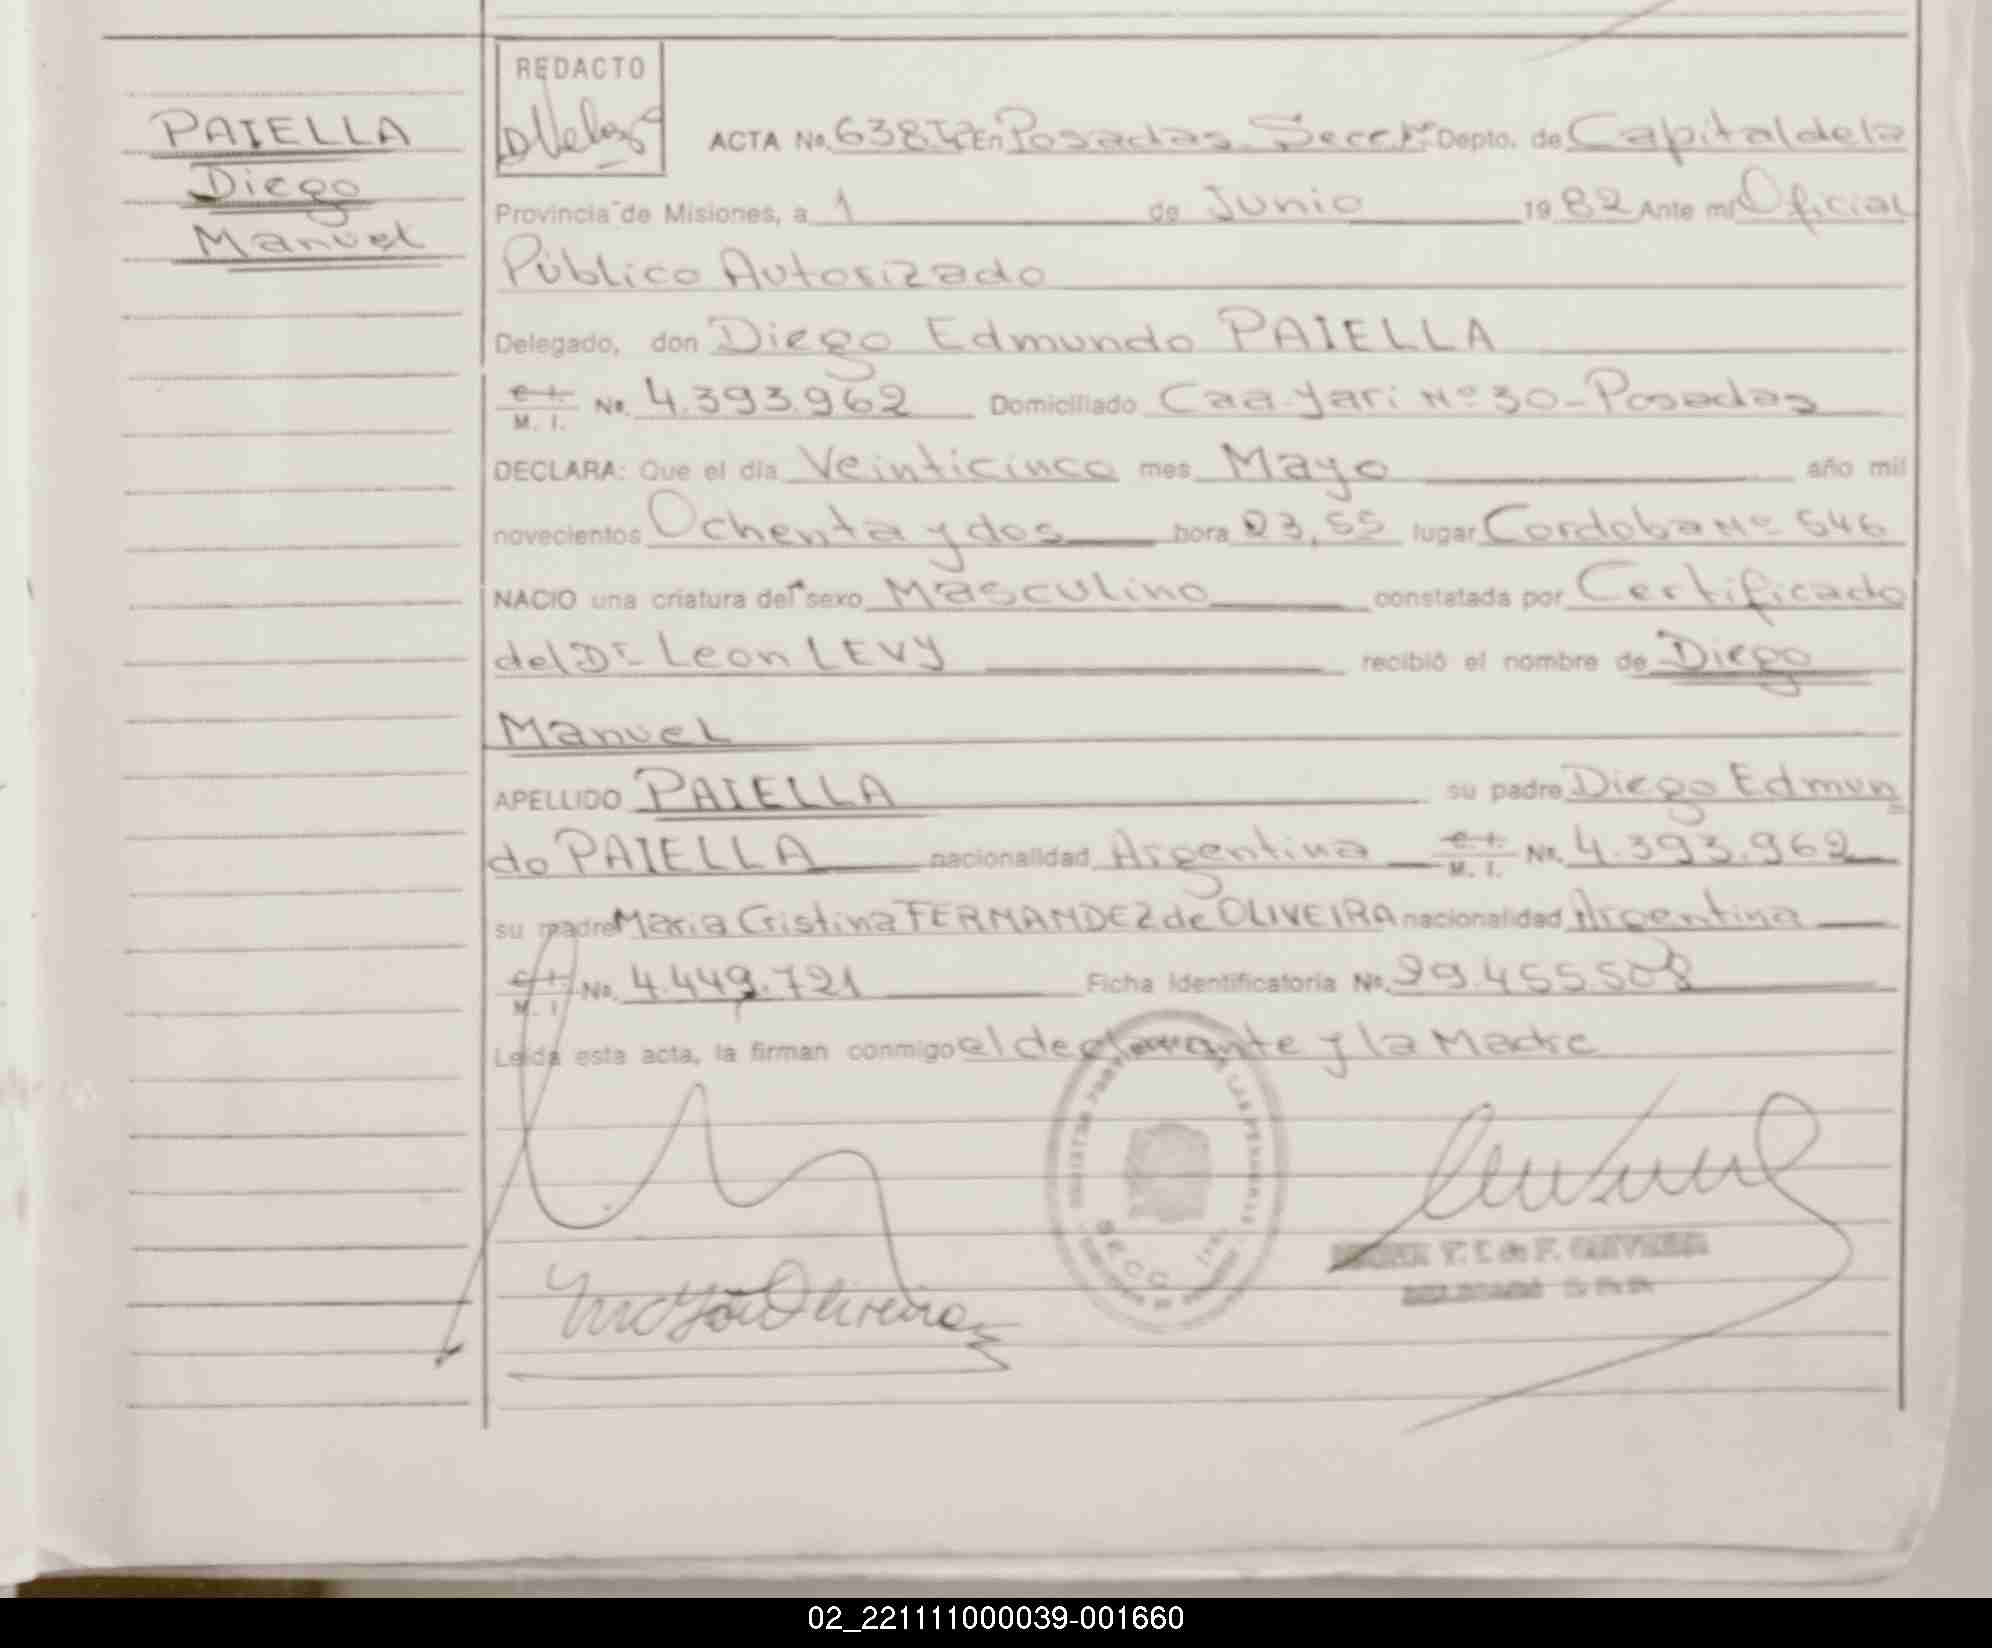 PAIELLA
Diego
Manuel
REDACTO
ACTA No. 638 En Posadas Secc. Depto. de Capital de la
Provincia de Misiones, a 1 de Junio 1982 Ante mi Oficial
Público Autorizado
Delegado, don Diego Edmundo PAIELLA
M. I. No. 4.393.962 Domiciliado Caa-Yari Nº 30-Posadas
DECLARA: Que el día Veinticinco mes Mayo año mil
novecientos Ochenta y dos hora 23,55 lugar Cordoba Nº 546
NACIO una criatura del sexo Masculino constatada por Certificado
del Dr. Leon LEVY recibió el nombre de Diego
Manuel
APELLIDO PAIELLA su padre Diego Edmun
do PAIELLA nacionalidad Argentina M. I. No. 4.393.962
su madre Maria Cristina FERNANDEZ de OLIVEIRA nacionalidad Argentina
M. I. No. 4.449.721 Ficha Identificatoria No. 29.455.508
Leída esta acta, la firman conmigo el declarante y la Madre
02_221111000039-001660